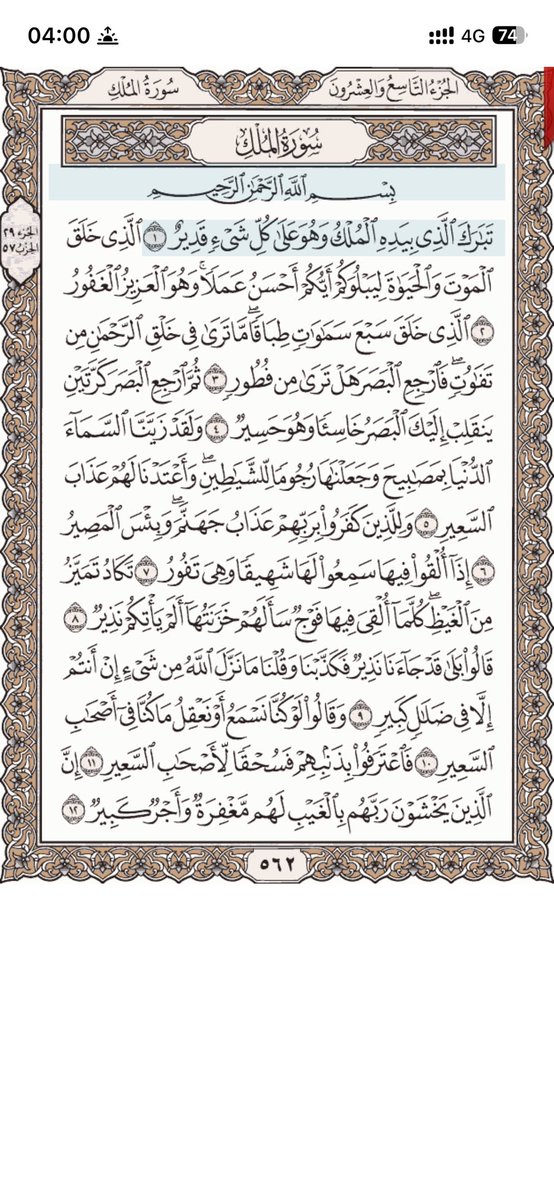 04:00 4G 74
الجُزْءُ التَّاسِعُ وَالعِشْرُونَ سُورَةُ المُلْكِ
سُورَةُ المُلْكِ
الجزء ٢٩
الحزب ٥٧
بِسْمِ ٱللَّهِ ٱلرَّحْمَٰنِ ٱلرَّحِيمِ
تَبَٰرَكَ ٱلَّذِي بِيَدِهِ ٱلْمُلْكُ وَهُوَ عَلَىٰ كُلِّ شَيْءٍ قَدِيرٌ ١ ٱلَّذِي خَلَقَ
ٱلْمَوْتَ وَٱلْحَيَوٰةَ لِيَبْلُوَكُمْ أَيُّكُمْ أَحْسَنُ عَمَلًاۚ وَهُوَ ٱلْعَزِيزُ ٱلْغَفُورُ
٢ ٱلَّذِي خَلَقَ سَبْعَ سَمَٰوَٰتٍ طِبَاقًاۖ مَّا تَرَىٰ فِي خَلْقِ ٱلرَّحْمَٰنِ مِن
تَفَٰوُتٍۖ فَٱرْجِعِ ٱلْبَصَرَ هَلْ تَرَىٰ مِن فُطُورٍ ٣ ثُمَّ ٱرْجِعِ ٱلْبَصَرَ كَرَّتَيْنِ
يَنقَلِبْ إِلَيْكَ ٱلْبَصَرُ خَاسِئًا وَهُوَ حَسِيرٌ ٤ وَلَقَدْ زَيَّنَّا ٱلسَّمَآءَ
ٱلدُّنْيَا بِمَصَٰبِيحَ وَجَعَلْنَٰهَا رُجُومًا لِّلشَّيَٰطِينِۖ وَأَعْتَدْنَا لَهُمْ عَذَابَ
ٱلسَّعِيرِ ٥ وَلِلَّذِينَ كَفَرُوا۟ بِرَبِّهِمْ عَذَابُ جَهَنَّمَۖ وَبِئْسَ ٱلْمَصِيرُ
٦ إِذَآ أُلْقُوا۟ فِيهَا سَمِعُوا۟ لَهَا شَهِيقًا وَهِيَ تَفُورُ ٧ تَكَادُ تَمَيَّزُ
مِنَ ٱلْغَيْظِۖ كُلَّمَآ أُلْقِيَ فِيهَا فَوْجٌ سَأَلَهُمْ خَزَنَتُهَآ أَلَمْ يَأْتِكُمْ نَذِيرٌ ٨
قَالُوا۟ بَلَىٰ قَدْ جَآءَنَا نَذِيرٌ فَكَذَّبْنَا وَقُلْنَا مَا نَزَّلَ ٱللَّهُ مِن شَيْءٍ إِنْ أَنتُمْ
إِلَّا فِي ضَلَٰلٍ كَبِيرٍ ٩ وَقَالُوا۟ لَوْ كُنَّا نَسْمَعُ أَوْ نَعْقِلُ مَا كُنَّا فِيٓ أَصْحَٰبِ
ٱلسَّعِيرِ ١٠ فَٱعْتَرَفُوا۟ بِذَنۢبِهِمْ فَسُحْقًا لِّأَصْحَٰبِ ٱلسَّعِيرِ ١١ إِنَّ
ٱلَّذِينَ يَخْشَوْنَ رَبَّهُم بِٱلْغَيْبِ لَهُم مَّغْفِرَةٌ وَأَجْرٌ كَبِيرٌ ١٢
٥٦٢